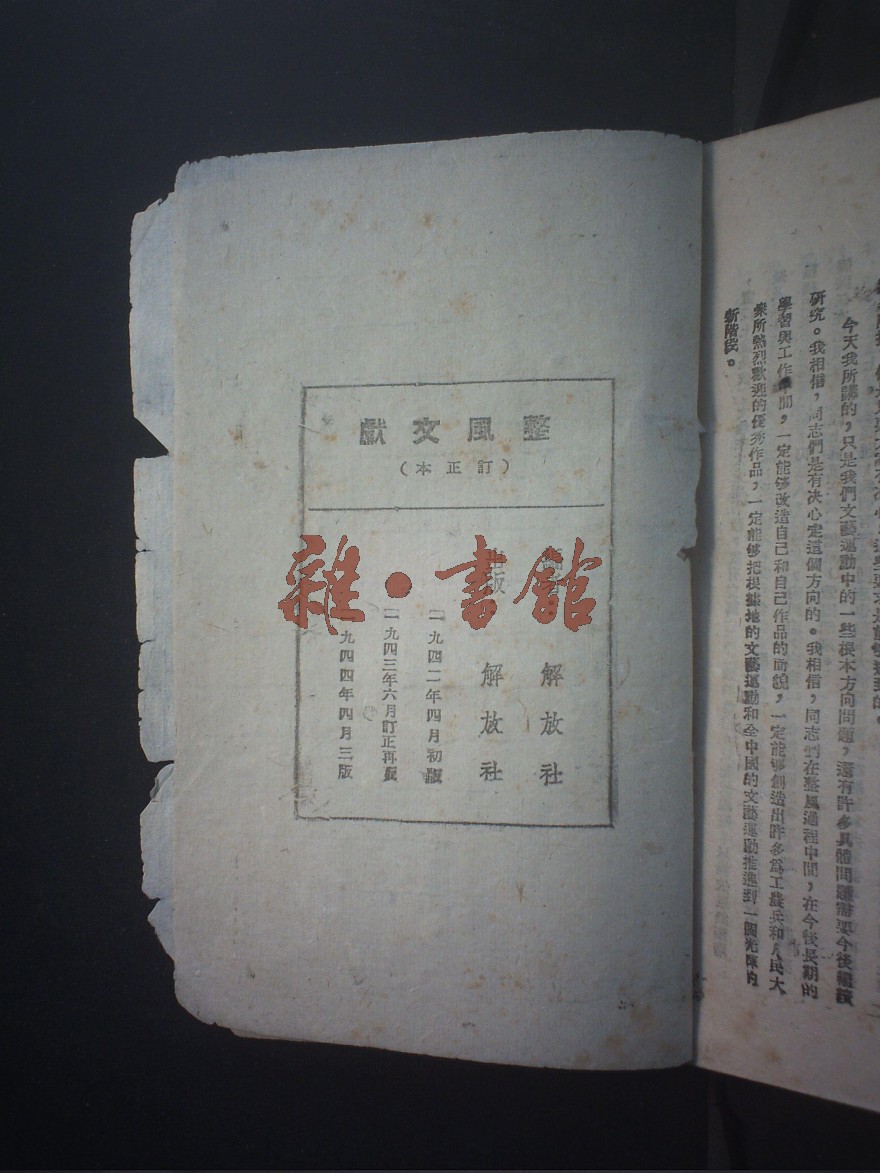 整風文獻
（訂正本）
編者 解放社
出版 解放社
一九四二年四月初版
一九四三年六月訂正再版
一九四四年四月三版
雜·書館
今天我所講的，只是我們文藝運動中的一些根本方向問題，還有許多具體問題需要今後繼續
研究。我相信，同志們是有决心走這個方向的。我相信，同志們在整風過程中間，在今後長期的
學習與工作中間，一定能够改造自己和自己作品的面貌，一定能够創造出許多爲工農兵和人民大
衆所熱烈歡迎的優秀作品，一定能够把根據地的文藝運動和全中國的文藝運動推進到一個光輝的
新階段。